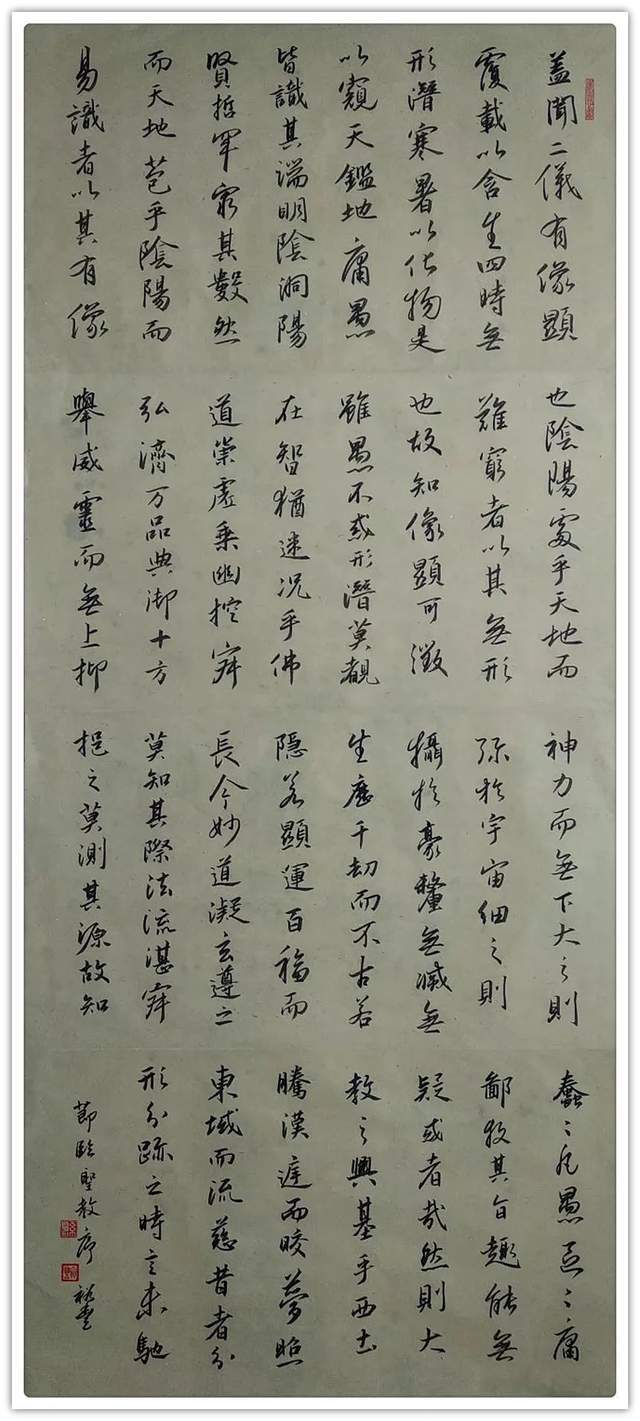 蓋聞二儀有像顯
覆載以含生四時無
形潛寒暑以化物是
以窺天鑑地庸愚
皆識其端明陰洞陽
賢哲罕窮其數然
而天地苞乎陰陽而
易識者以其有像
也陰陽處乎天地而
難窮者以其無形
也故知像顯可徵
雖愚不惑形潛莫覩
在智猶迷況乎佛
道崇虛乘幽控寂
弘濟万品典御十方
舉威靈而無上抑
神力而無下大之則
弥於宇宙細之則
攝於豪釐無滅無
生歷千劫而不古若
隱若顯運百福而
長今妙道凝玄遵之
莫知其際法流湛寂
挹之莫測其源故知
蠢〻凡愚區〻庸
鄙投其旨趣能無
疑或者哉然則大
教之興基乎西土
騰漢庭而皎夢照
東域而流慈昔者分
形分跡之時言未馳
節臨聖教序